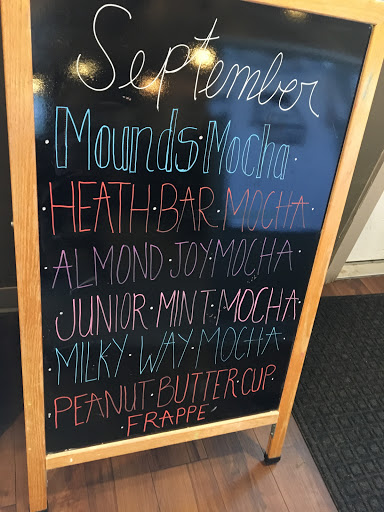 September
Mounds Mocha
HEATH BAR MOCHA
ALMOND JOY MOCHA
JUNIOR MINT MOCHA
MILKY WAY MOCHA
PEANUT BUTTER CUP
FRAPPE